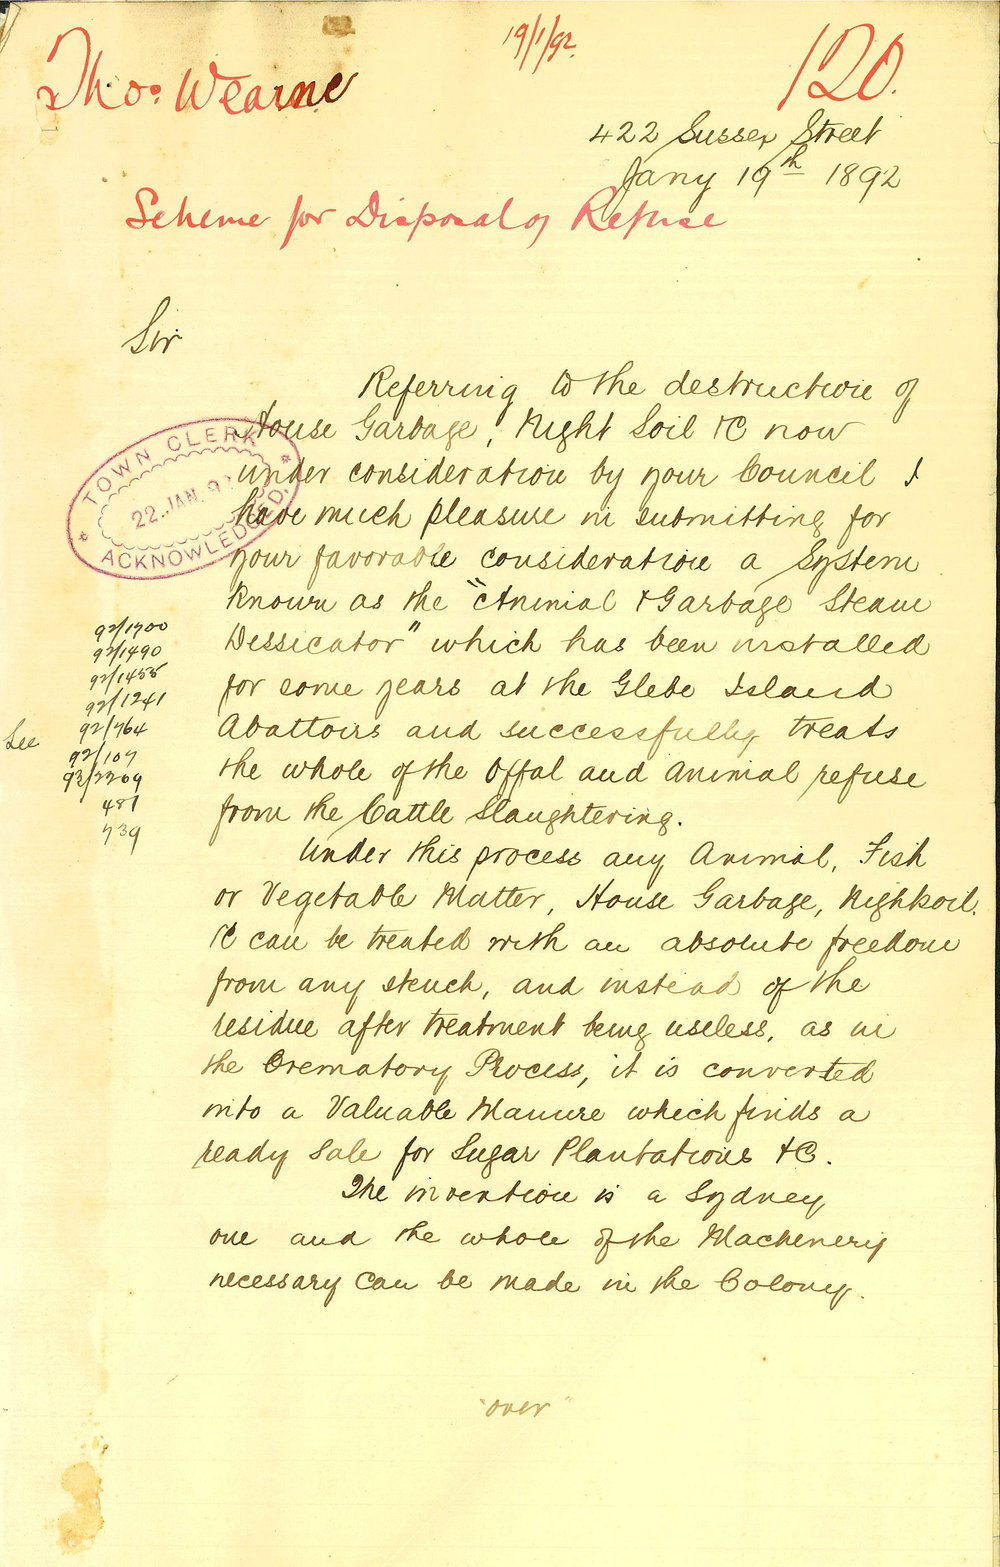 19/1/92.
Thos. Wearne
120.
422 Sussex Street
Jany 19th 1892
Scheme for Disposal of Refuse
Sir
Referring to the destruction of
House Garbage, Night Soil &C now
under consideration by your Council I
have much pleasure in submitting for
your favorable consideration a System
known as the "Animal & Garbage Steam
Dessicator" which has been installed
for some years at the Glebe Island
Abattoirs and successfully treats
the whole of the Offal and Animal refuse
from the Cattle Slaughtering.
Under this process any Animal, Fish
or Vegetable Matter, House Garbage, Nightsoil.
&C can be treated with an absolute freedom
from any stench, and instead of the
residue after treatment being useless, as in
the Crematory Process, it is converted
into a Valuable Manure which finds a
ready Sale for Sugar Plantations &C.
The invention is a Sydney
one and the whole of the Machinery
necessary can be made in the Colony.
"over"
TOWN CLERK
22.JAN.92
ACKNOWLEDGED.
See
92/1700
92/1490
92/1455
92/1241
92/764
92/107
93/2209
481
739